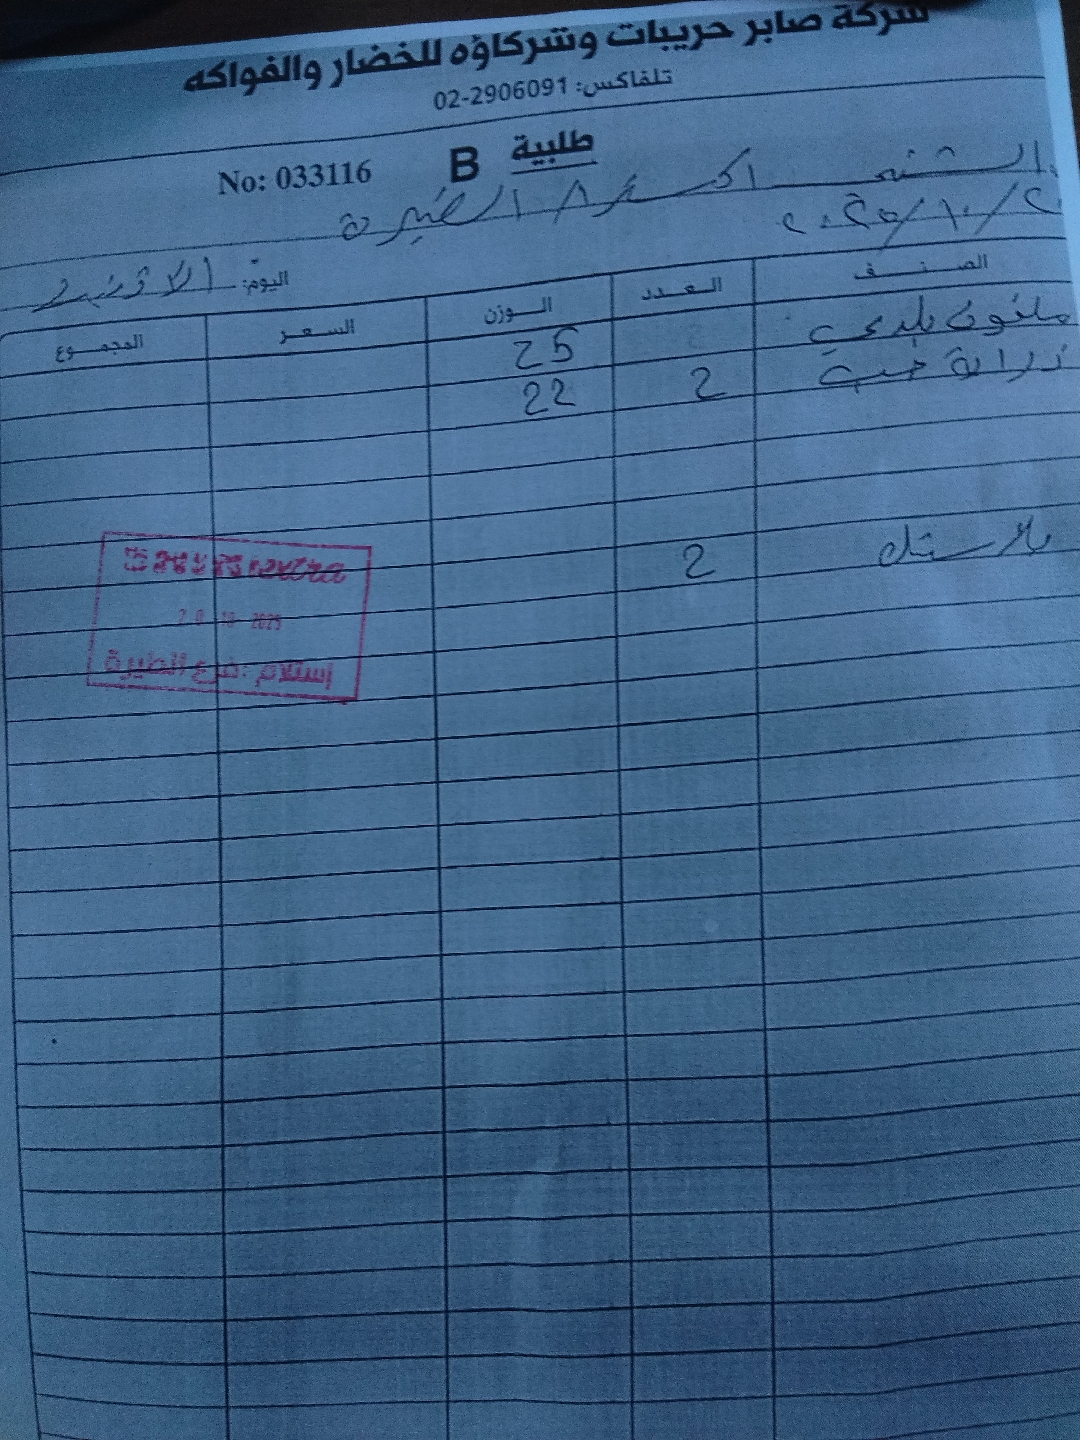 شركة صابر حريبات وشركاؤه للخضار والفواكه
تلفاكس: 02-2906091
طلبية B No: 033116
اكسترا الطيرة
٢٠/١٠/٢٠٢٥
اليوم: الاثنين
الصنف العدد الوزن السعر المجموع
ملفوف بلدي 25
حبة 2 22
بلاستك 2
extra
20 10 2025
إستلام: فرع الطيرة